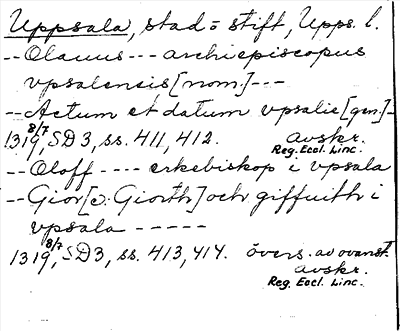 Uppsala, stad o stift, Upps. l.
-- Olauus --- archiepiscopus
vpsalensis [nom.] ---
-- Actum et datum vpsalie [gen.] -
1319 8/7, SD3, ss. 411, 412. avskr.
Reg. Eccl. Linc.
-- Oloff ---- erkebiskop i vpsala
-- Gior [o: Giorth] och giffuith i
vpsala -----
1319 8/7, SD3, ss. 413, 414. övers. av ovanst.
avskr.
Reg. Eccl. Linc.